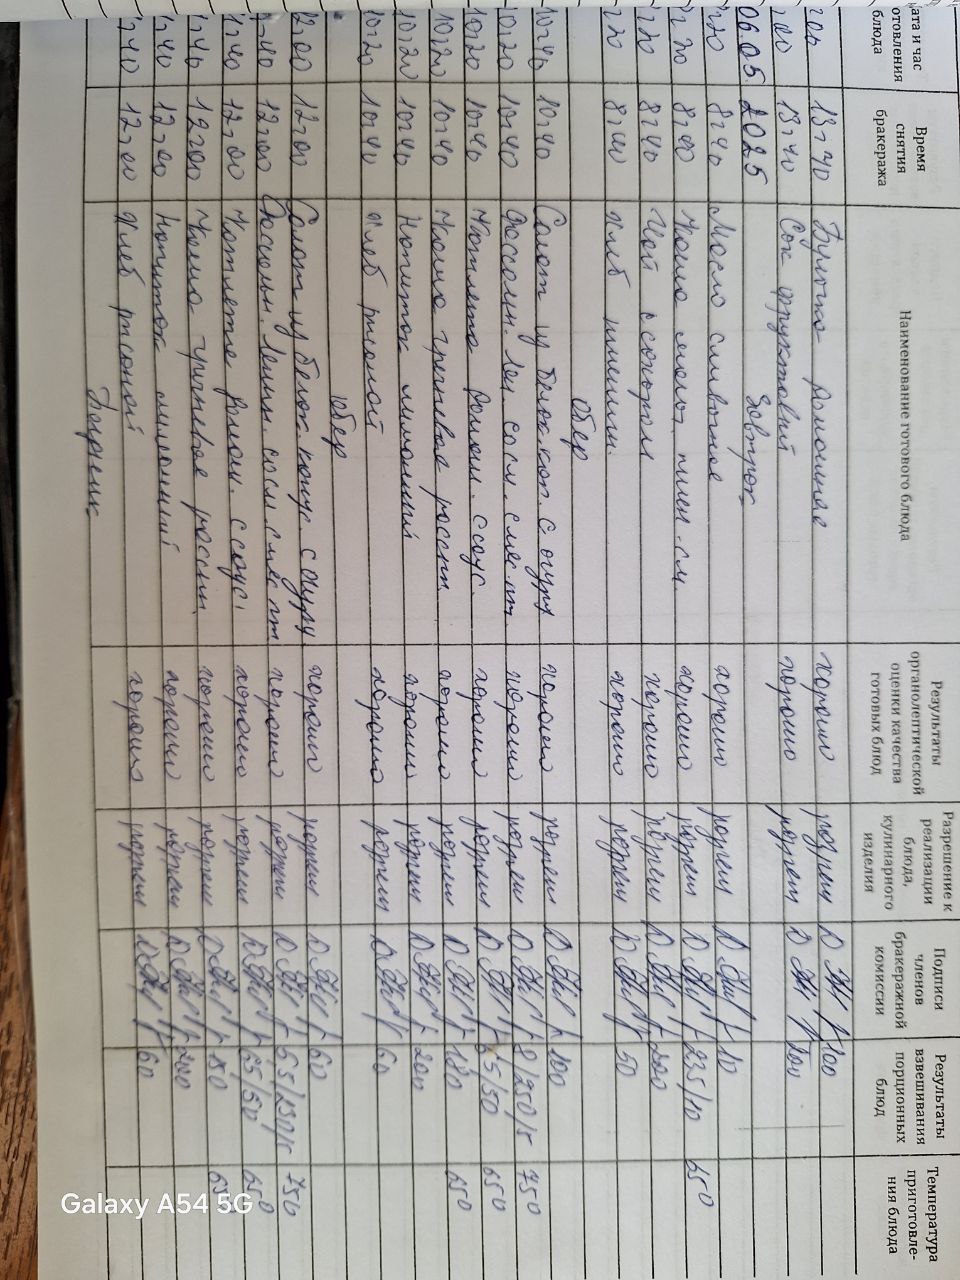 ата и час отовления блюда | Время снятия бракеража | Наименование готового блюда | Результаты органолептической оценки качества готовых блюд | Разрешение к реализации блюда, кулинарного изделия | Подписи членов бракеражной комиссии | Результаты взвешивания порционных блюд | Температура приготовле- ния блюда
13-40 Булочка домашняя хорошо разреш 100
13-40 Сок фруктовый хорошо разреш 200
06.05.2025 Завтрак
8-40 Масло сливочное хорошо разреш 10
8-40 Каша молоч. пшен. см. хорошо разреш 235/10 65°
8-40 Чай с сахаром хорошо разреш 200
8-40 Хлеб пшенич. хорошо разреш 50
Обед
10-40 10-40 Салат из с огур хорошо разреш 100
10-20 10-40 Рассольн. лен с мяс. хорошо разреш 8/250/5 75°
10-20 10-40 Котлета с соус. хорошо разреш 65/50 65°
10-20 10-40 Каша гречневая рассып хорошо разреш 180 65°
10-20 10-40 Напиток лимонный хорошо разреш 200
10-20 10-40 Хлеб ржаной хорошо разреш 60
Обед
12-00 12-00 Салат из с огур хорошо разреш 60
12-00 Рассольн. с мяс. хорошо разреш 65/250/5 75°
12-00 Котлета с соус. хорошо разреш 65/50 65°
12-00 Каша гречневая рассып. хорошо разреш 180
12-00 Напиток лимонный хорошо разреш 200
12-00 Хлеб ржаной хорошо разреш 60
Полдник
Galaxy A54 5G